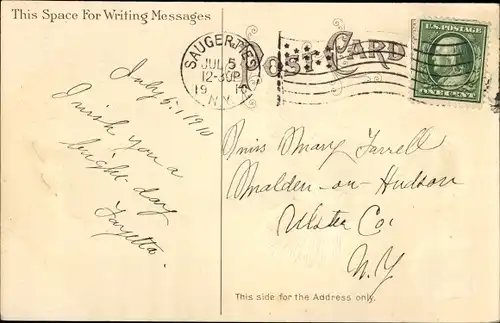 This Space For Writing Messages
SAUGERTIES
JUL 5
12-30P
1910
N.Y.
POST CARD
U.S. POSTAGE
ONE CENT
July 5, 1910
I wish you a
bright day
Fayetta.
Miss Mary Farrell
Malden-on-Hudson
Ulster Co.
N.Y
This side for the Address only.